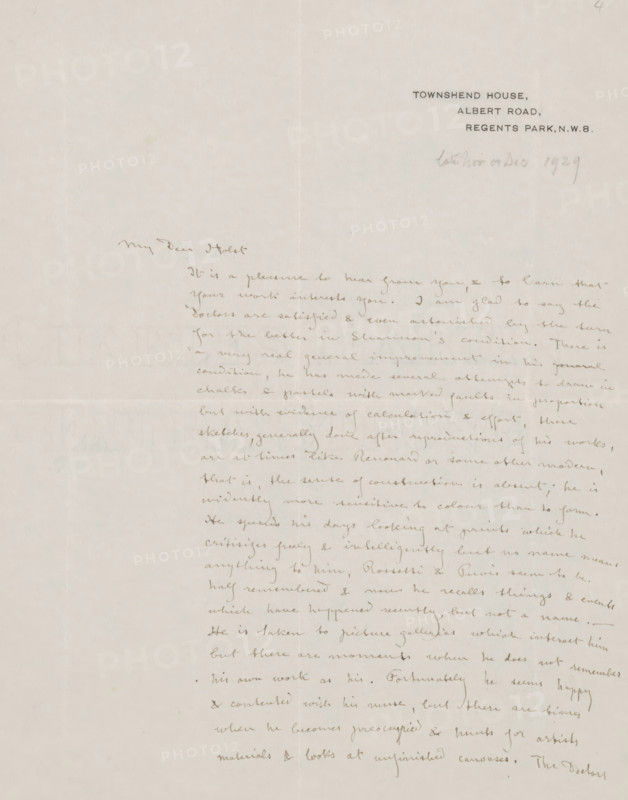 4
TOWNSHEND HOUSE,
ALBERT ROAD,
REGENTS PARK, N.W.8.
late Nov or Dec 1929
My Dear Holst
It is a pleasure to hear from you, & to learn that
your work interests you. I am glad to say the
Doctors are satisfied & even astonished by the turn
for the better in Shannon's condition. There is
a very real general improvement in his general
condition, he has made several attempts to draw in
chalks & pastels with marked faults in proportion
but with evidence of calculation & effort, these
sketches, generally done after reproductions of his works,
are at times like Renouard or some other modern,
that is, the sense of construction is absent; he is
evidently more sensitive to colour than to form.
He spends his days looking at prints which he
critisizes freely & intelligently but no name means
anything to him, Rossetti & Puvis seem to be
half remembered & now he recalls things & events
which have happened recently, but not a name. —
He is taken to picture galleries which interest him
but there are moments when he does not remember
his own work as his. Fortunately he seems happy
& contented with his nurse, but there are times
when he becomes preoccupied & hunts for artists
materials & looks at unfinished canvases. The Doctors
PHOTO12